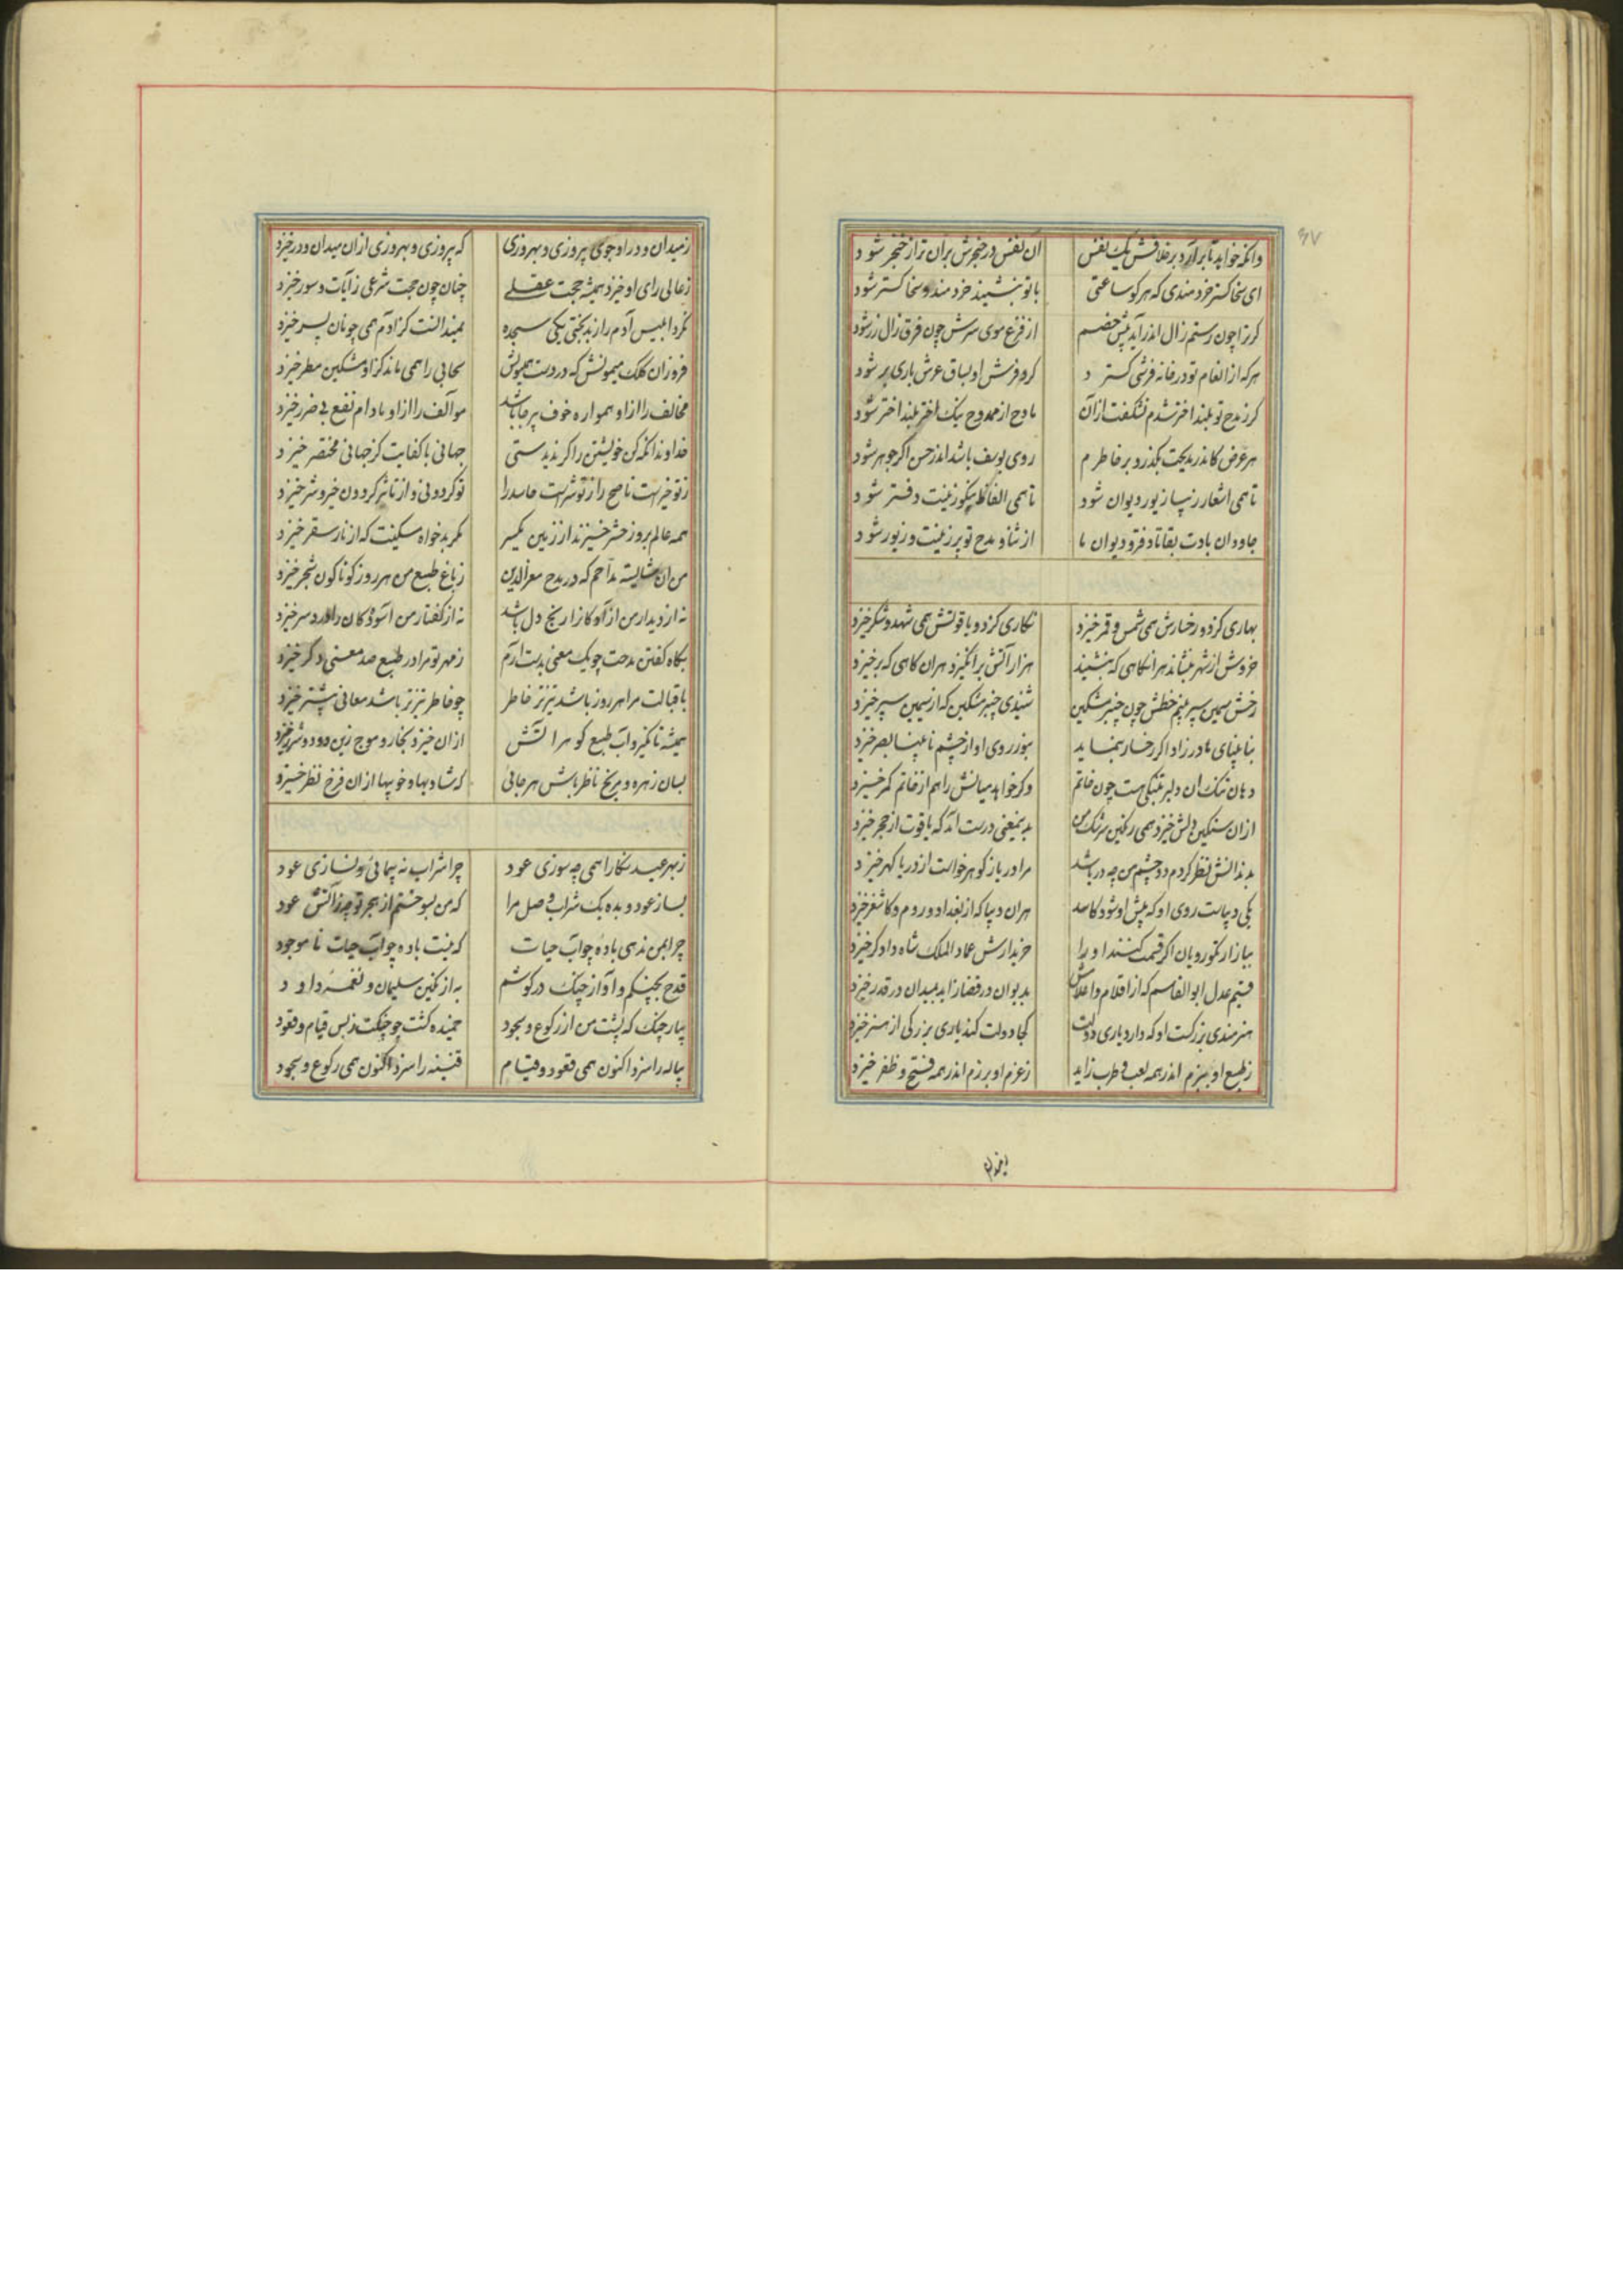 ۶۷
وانکه خواهد تا برآرد بر خلافش یک نفس آن نفس در حنجرش بران تر از خنجر شود
ای سخا کستر خردمندی که هر کو ساعتی با تو بنشیند خردمند و سخا کستر شود
کر ترا چون رستم زال اندر آید پیش خصم از فزع موی سرش چون فرق زال زر شود
هر که از انعام تو در خانه فرشی کسترد کرد فرش او بساق عرش باری بر شود
کر ز مدح تو بلند اختر شدم نشکفت از آن مادح از ممدوح نیک اختر بلند اختر شود
هر عرض کاندر مدیحت بکذرد بر خاطرم روی یوسف باشد اندر حسن اکر جوهر شود
تا همی اشعار زیبا زیور دیوان شود تا همی الفاظ نیکو زینت دفتر شود
جاودان بادت بقا تا دفتر و دیوان ما از ثنا و مدح تو بر زینت و زیور شود
بهاری کز دو رخسارش همی شمس و قمر خیزد نکاری کز دو یاقوتش همی شهد و شکر خیزد
خروش از شهر بنشاند هر انکاهی که بنشیند هزار آتش برانکیزد هر ان کاهی که بر خیزد
رخش سیمین سپر بینم خطش چون چنبر مشکین شنیدی چنبر مشکین که از سیمین سپر خیزد
بنا بینای مادر زاد اکر رخسار بنماید بنور روی او از چشم نا بینا بصر خیزد
دهان تنک ان دلبر بتنکی هست چون خاتم و کر خواهد میانش را هم از خاتم کمر خیزد
از ان سنکین دلش خیزد همی رنکین سرشک من بدین معنی درست آمد که یاقوت از حجر خیزد
بدندانش نظر کردم دو چشم من چو دریا شد مرا در یاز کوهر خواست از دریا کهر خیزد
یکی دیباست روی او که پیش او شود کاسد هر ان دیبا که از بغداد و روم و کاشغر خیزد
ببازار نکورویان اکر قیمت کنند او را خریدارش عماد الملک شاه دادکر خیزد
قسیم عدل ابو القاسم که از اقلام و اعلامش بدیوان در قضا زاید بمیدان در قدر خیزد
هنرمندی بزرکست او که دارد یاری دولت کجا دولت کند یاری بزرکی از هنر خیزد
ز طبع او ببزم اندر همه لعب و طرب زاید ز عزم او برزم اندر همه فتح و ظفر خیزد
ز میدان و در او جوی پیروزی و بهروزی که پیروزی و بهروزی از ان میدان و در خیزد
ز عالی رای او خیزد همیشه حجت عقلی چنان چون حجت شرعی ز آیات و سور خیزد
نکرد ابلیس آدم را ز بدبختی یکی سجده کز ادم همی چونان پسر خیزد
فروزان کلک میمونش که در دست همایونش سحابی را همی ماند کزاو مشکین مطر خیزد
مخالف را از او همواره خوف بر جا باشد موآلف را از او مادام نفع بی ضرر خیزد
خداوندا نکه کن خویشتن را کر ندیدستی جهانی با کفایت کز جهانی مختصر خیزد
ز تو خیرست ناصح را ز تو شرست حاسد را تو کردونی و از تاثیر کردون خیر و شر خیزد
همه عالم بروز حشر خیزند از زمین یکسر مکر بدخواه مسکینت که از نار سقر خیزد
من ان شایسته مداحم که در مدح معز الدین ز باغ طبع من هر روز کوناکون شجر خیزد
نه از دیدار من ازادکان را رنج دل باشد نه از کفتار من آسودکان را درد سر خیزد
بکاه کفتن مدحت چو یک معنی بدست آرم ز مهر تو مرا در طبع صد معنی دکر خیزد
باقبالت مرا هر روز باشد تیزتر خاطر چو خاطر تیزتر باشد معانی بیشتر خیزد
همیشه تا نکیرد آب طبع کوهر اتش از ان خیزد بخار و موج زین دود و شرر خیزد
بسان زهره و مریخ ناظر باش هر جائی که شادیها و خوبیها از ان فرخ نظر خیزد
ز بهر عید نکارا همی چه سوزی عود چرا شراب نه پیمائی و نسازی عود
بساز عود و بده یک شراب وصل مرا که من بسوختم از هجر تو چو زآتش عود
چرا بمن ندهی باده چو آب حیات که نیست باده چو آب حیات نا موجود
قدح بچنکم و آواز چنک در کوشم به از نکین سلیمان و نغمهٔ داود
بیار چنک که پشت من از رکوع و سجود خمیده کشت چو چنکت ز بس قیام و قعود
پیاله را سزد اکنون همی قعود و قیام قنینه را سزد اکنون همی رکوع و سجود